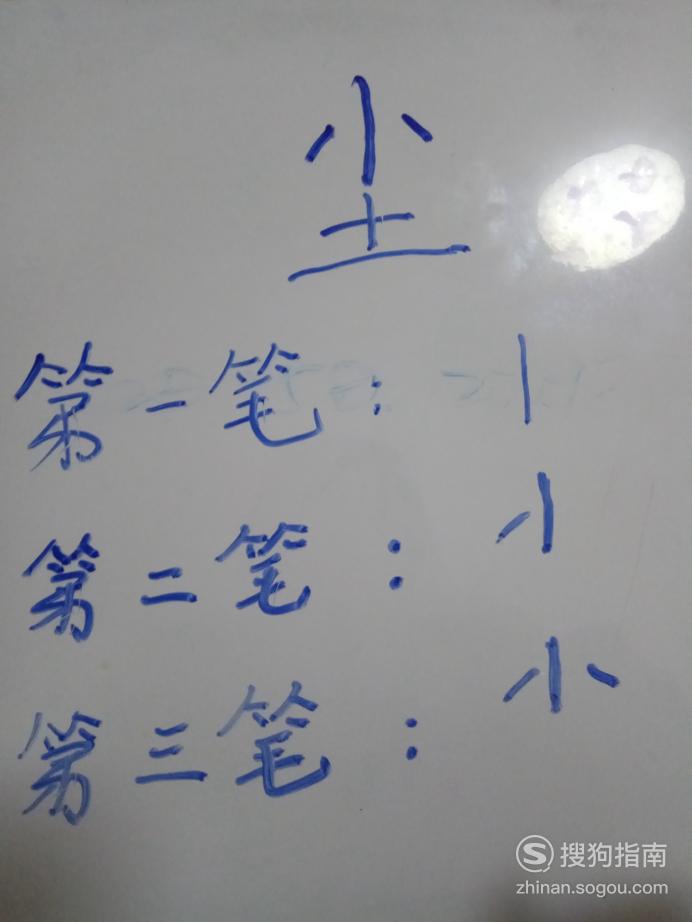 尘
第一笔：丨
第二笔：
第三笔：小
搜狗指南
zhinan.sogou.com